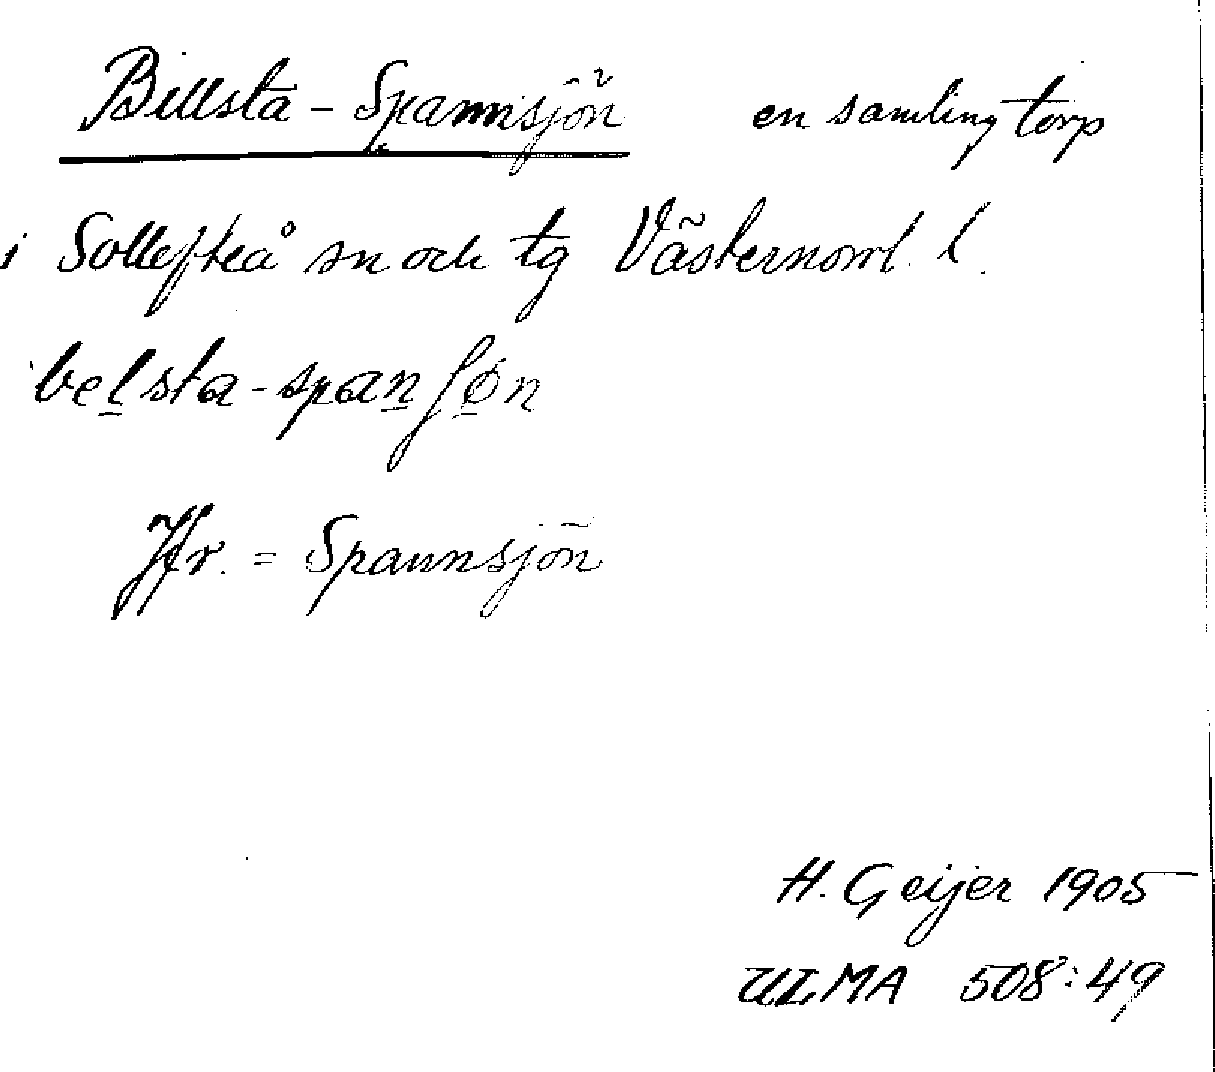 Billsta - Spannsjön en samling torp
i Sollefteå sn och tg Västernorrl. l.
belsta-spanʃøn
Jfr. = Spannsjön
H. Geijer 1905
ULMA 508:49